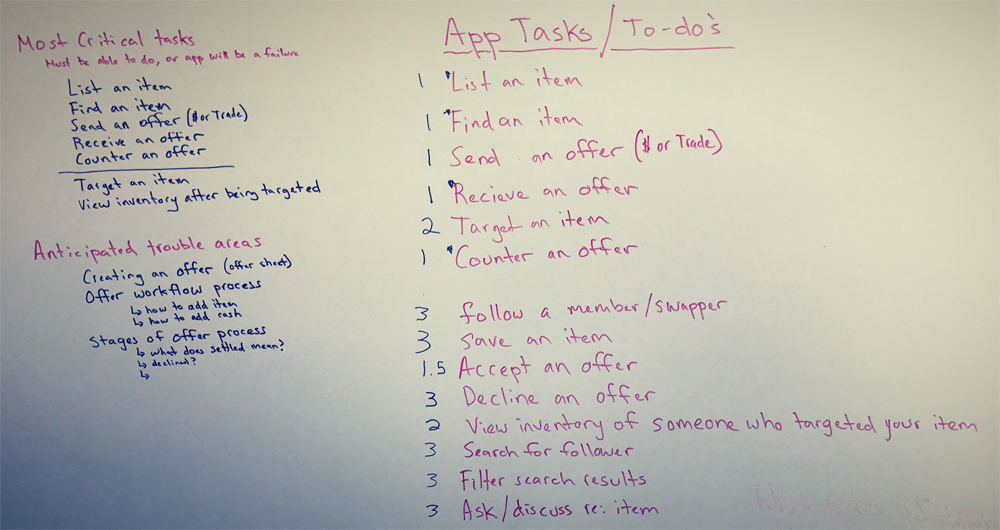 Most Critical tasks
Must be able to do, or app will be a failure
List an item
Find an item
Send an offer ($ or Trade)
Receive an offer
Counter an offer
Target an item
View inventory after being targeted
Anticipated trouble areas
Creating an offer (offer sheet)
Offer workflow process
↳ how to add item
↳ how to add cash
Stages of offer process
↳ what does settled mean?
↳ declined?
↳
App Tasks/To-do's
1 *List an item
1 *Find an item
1 Send an offer ($ or Trade)
1 *Recieve an offer
2 Target an item
1 *Counter an offer
3 follow a member/swapper
3 Save an item
1.5 Accept an offer
3 Decline an offer
2 View inventory of someone who targeted your item
3 Search for follower
3 Filter search results
3 Ask/discuss re: item